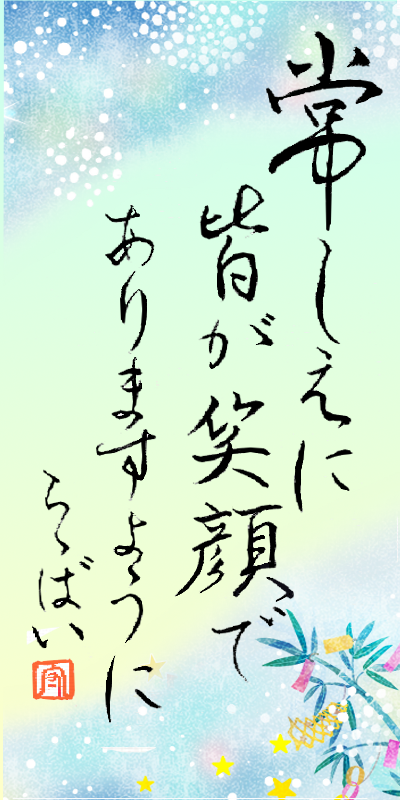 常しえに
皆が笑顔で
ありますように
らゝばい